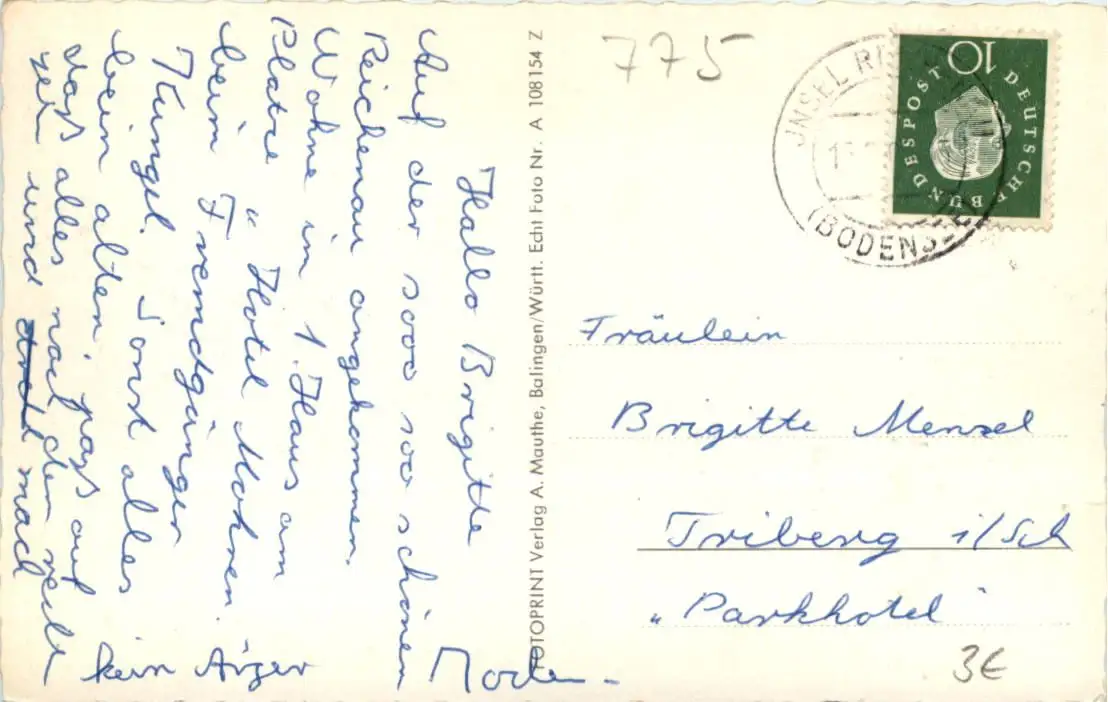 Hallo Brigitte
Auf der sooo sooo schönen
Reichenau angekommen.
Wohne im 1. Haus am
Platze „Hotel Mohren.
beim Fremdgünger
Kungel. Sonst alles
beim alten, paß auf
daß alles nach den
geh und mach
kein Ärger
FOTOPRINT Verlag A. Mauthe, Balingen/Württ. Echt Foto Nr. A 108154 Z
775
INSEL
(BODENSEE)
10
DEUTSCHE BUNDESPOST
Fräulein
Brigitte Menzel
Triberg i/Sch
„Parkhotel"
3€